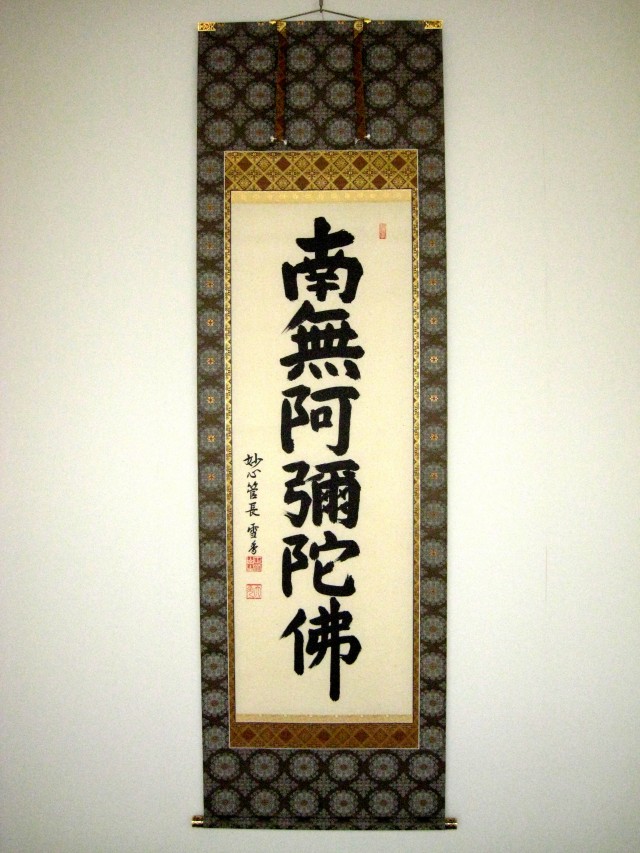 南無阿彌陀佛
妙心管長 雪香